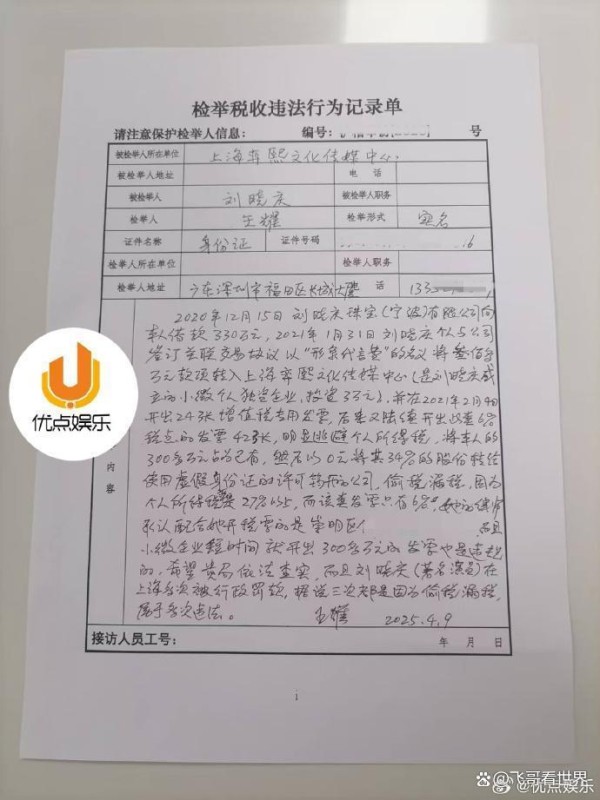 检举税收违法行为记录单
请注意保护检举人信息： 编号： 号
被检举人所在单位 上海弈熙文化传媒中心
被检举人地址 电话
被检举人 刘晓庆 被检举人职务
检举人 王耀 检举形式 实名
证件名称 身份证 证件号码 16
检举人所在单位 检举人职务
检举人地址 广东深圳市福田区长城大厦 133
2020年12月15日刘晓庆珠宝(宁波)有限公司向
本人借款330万元，2021年1月31日刘晓庆个人与公司
签订关联交易协议以“形象代言费”的名义将叁佰多
万元款项转入上海弈熙文化传媒中心(是刘晓庆成
立的小微个人独资企业，投资3万元)，并在2021年2月4日
开出24张增值税专用发票，后来又陆续开出此类6%
税点的发票42张，明显逃避个人所得税，将本人的
300多万元占为己有，然后以0元将其34%的股份转给
使用虚假身份证的许可转的公司，偷税漏税，因为
个人所得税 而该类发票只有6%，她的律师
承认配合她开税票的是崇明区 而且
小微企业短时间就开出300多万元的发票也是违规
的，希望贵局依法查实，而且刘晓庆(著名演员)在
上海多次被行政罚款，据说三次都是因为偷税漏税，
属于多次违法。 王耀 2025.4.9
内容
接访人员工号： 年 月 日
1
优点娱乐
飞哥看世界
@优点娱乐